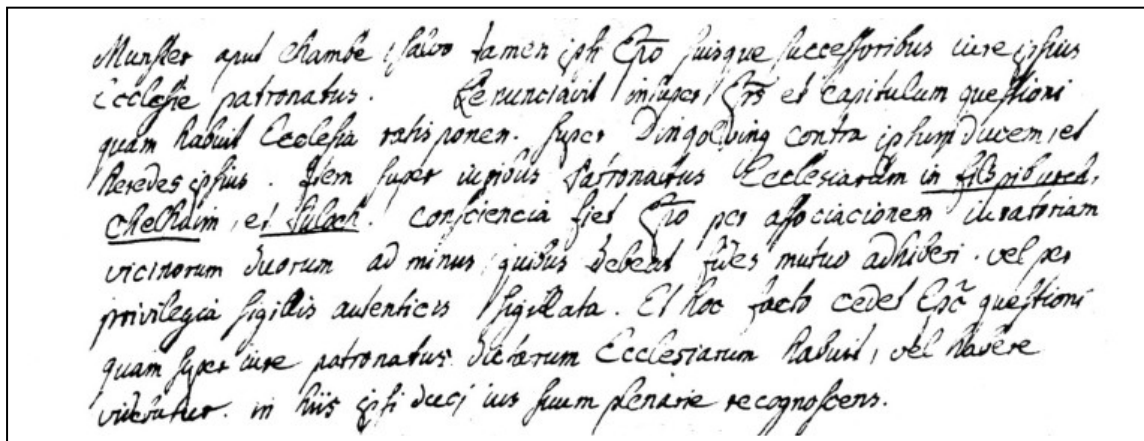 Munster aput Chambe, salvo tamen ipsi Epo suisque successoribus iure ipsius
Ecclesie patronatus. Renunciavit insuper Eps et capitulum questioni
quam habuit Ecclesia ratisponen. super Dingolving contra ipsum ducem, et
heredes ipsius. Item super iuribus Patronatus Ecclesiarum in
chelhaim, et Suloch. Consciencia fiet Epo per associacionem iuratoriam
vicinorum duorum ad minus, quibus debeat fides mutuo adhiberi. vel per
privilegia sigillis autenticis sigillata. Et hoc facto cedet Epc questioni
quam super iure patronatus dictarum Ecclesiarum habuit, vel habere
videtur. in hiis ipsi duci ius suum plenarie recognoscens.